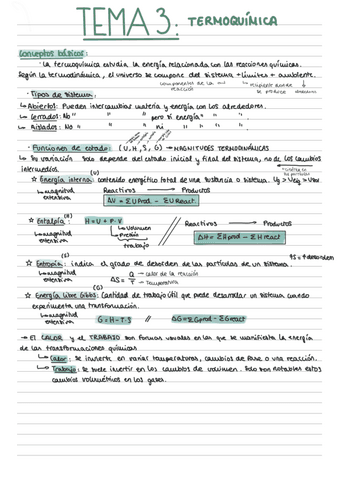 TEMA 3: TERMOQUÍMICA
Conceptos básicos:
· La termoquímica estudia la energía relacionada con las reacciones químicas.
Según la termodinámica, el universo se compone del sistema + límites + ambiente.
componentes de la reacción
recipiente donde se produce
alrededores
· Tipos de sistema:
→ Abierto: Pueden intercambiar materia y energía con los alrededores.
→ Cerrados: No " " pero sí energía " " "
→ Aislados: No " " ni " " " "
· Funciones de estado: (U, H, S, G) → MAGNITUDES TERMODINÁMICAS
↳ Su variación solo depende del estado inicial y final del sistema, no de los cambios
intermedios.
☆ Energía interna: (U) contenido energético total de una sustancia o sistema. Ug > Uliq > Usol
↳ magnitud extensiva
Reactivos → Productos
ΔU = ΣU Prod - ΣU React.
☆ Entalpía: (H) H = U + P·V
↳ magnitud extensiva
→ Volumen
→ Presión
trabajo
Reactivos → Productos
ΔH = ΣH prod - ΣH react
↑S = ↑desorden
☆ Entropía: (S) indica el grado de desorden de las partículas de un sistema.
↳ magnitud extensiva
ΔS = Q/T
→ calor de la reacción
→ Temperatura
☆ Energía libre Gibbs: (G) Cantidad de trabajo útil que puede desarrollar un sistema cuando
experimenta una transformación.
↳ magnitud extensiva
G = H - T·S // ΔG = ΣG prod - ΣG react
→ El CALOR y el TRABAJO son formas usuales en las que se manifiesta la energía
de las transformaciones químicas.
↳ Calor: Se invierte en variar temperaturas, cambios de fase o una reacción.
↳ Trabajo: Se suele invertir en los cambios de volumen. Solo son notables estos
cambios volumétricos en los gases.